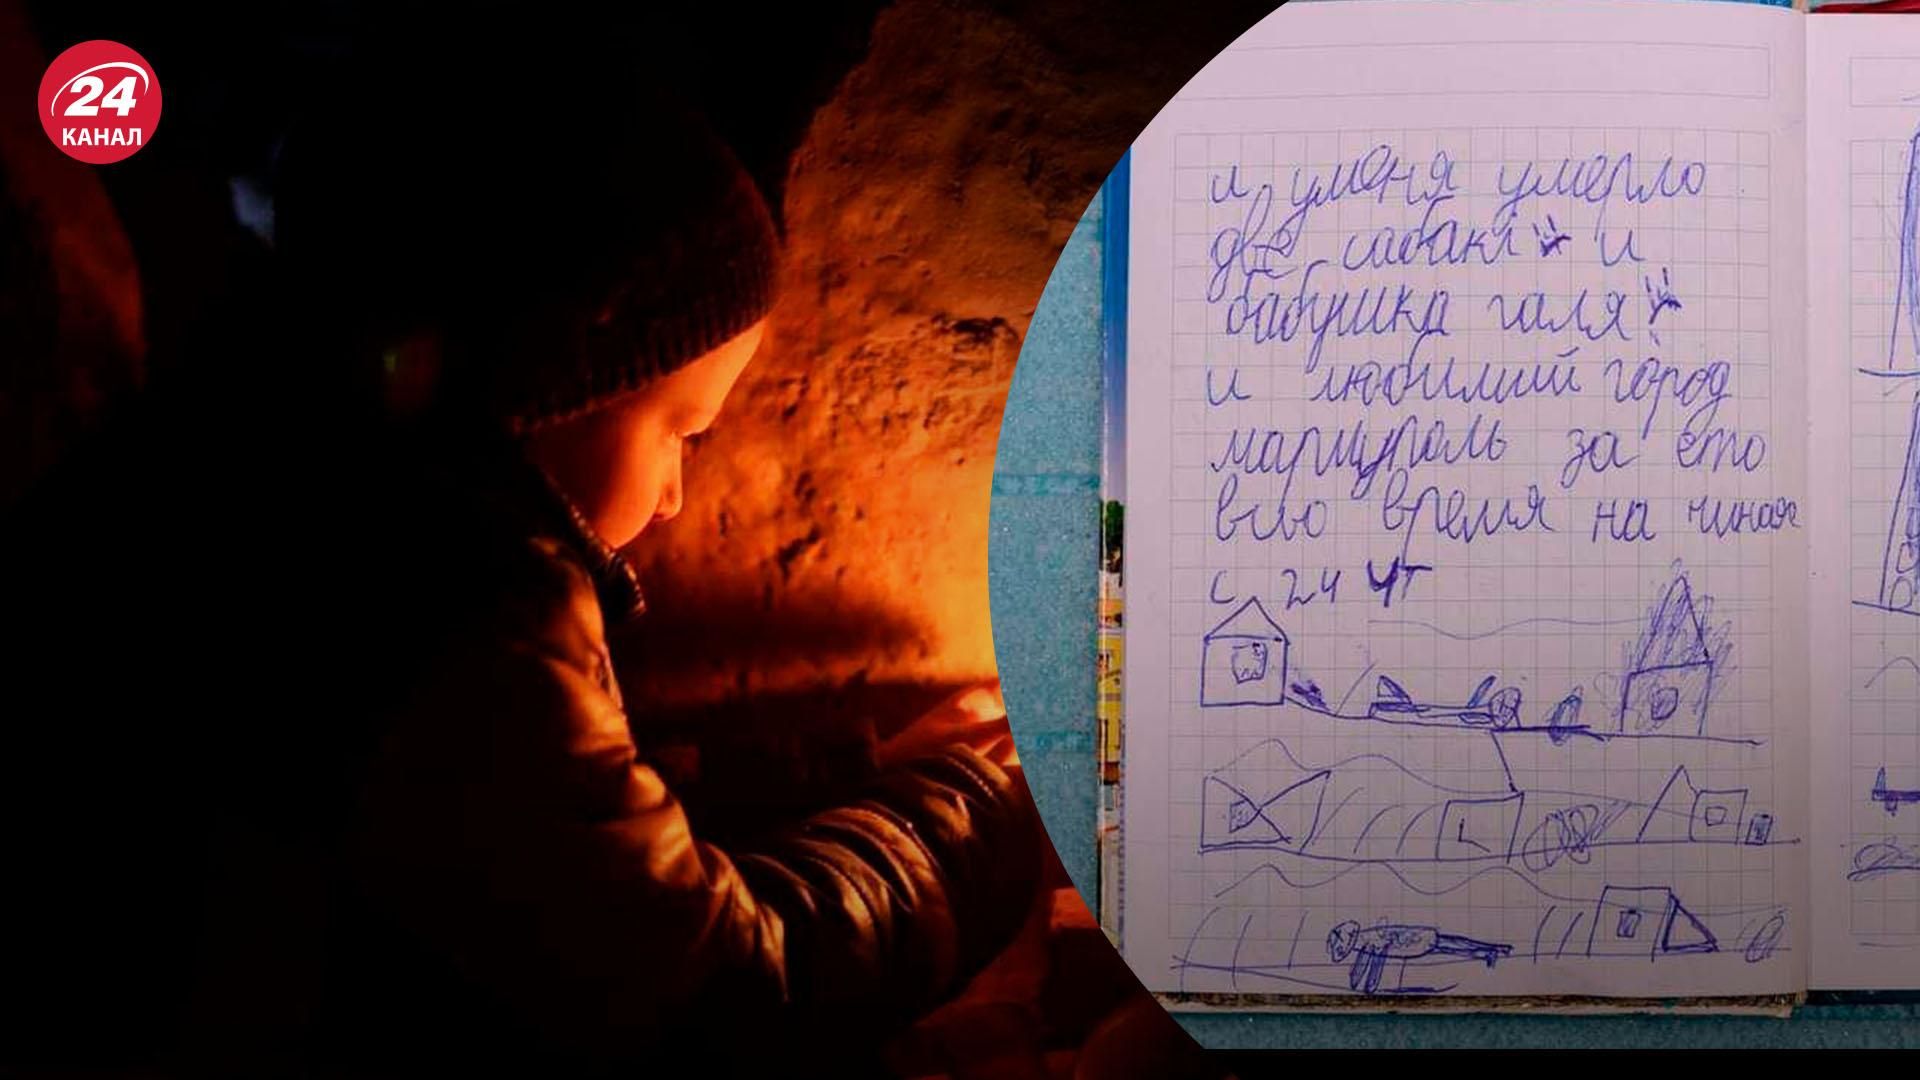 24
КАНАЛ
и уменя умерло
две сабаки и
бабушка галя
и любимий город
мариуполь за ето
всю время на чиная
с 24 чт